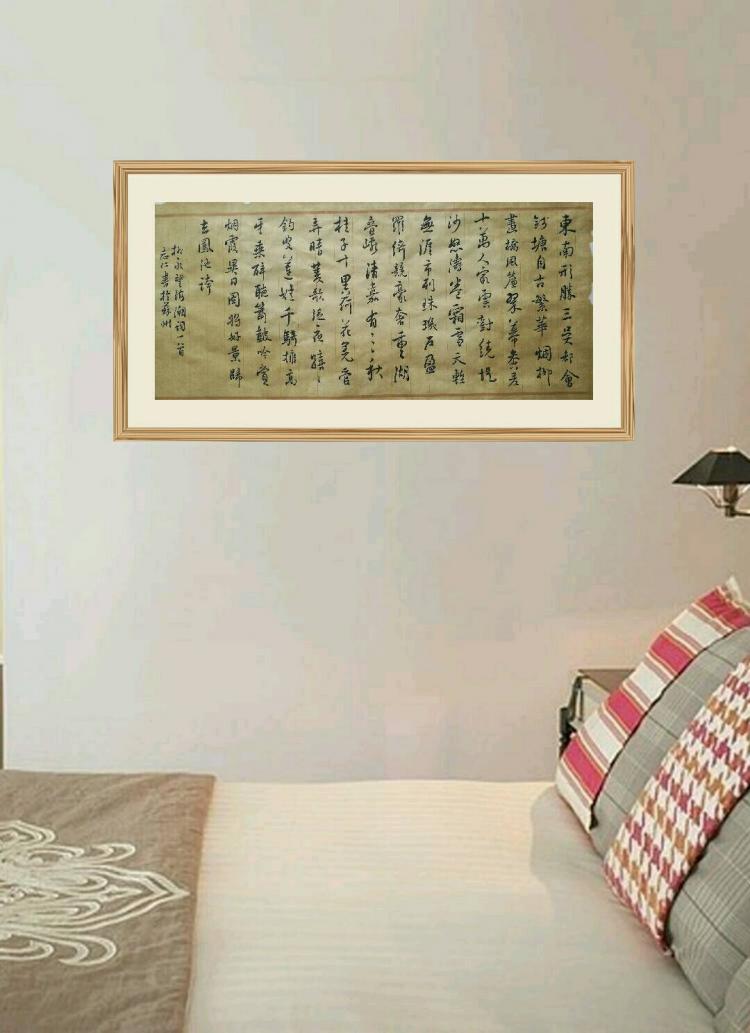 東南形勝三吴都會
錢塘自古繁華烟柳
畫橋風簾翠幕參差
十萬人家雲樹繞堤
沙怒濤卷霜雪天塹
無涯市列珠璣户盈
羅綺競豪奢重湖
疊巘清嘉有三秋
桂子十里荷花羌管
弄晴菱歌泛夜嬉〻
釣叟蓮娃千騎擁高
牙乘醉聽簫鼓吟賞
烟霞異日圖將好景歸
去鳳池誇
柳永望海潮詞一首
志仁書於蘇州